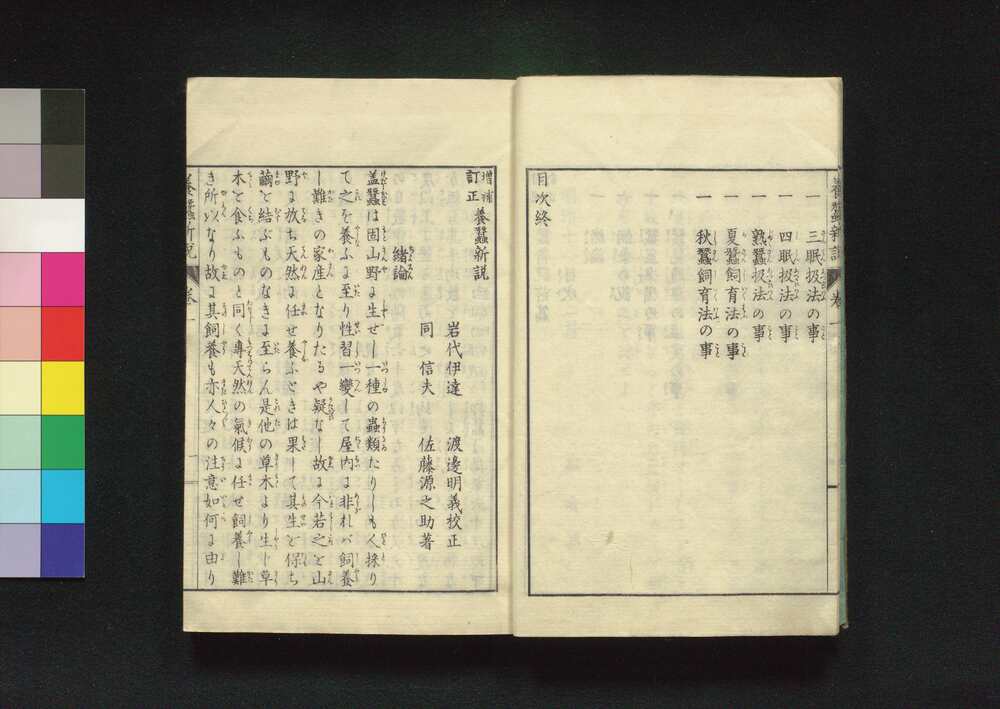 一 三眠扱法の事
一 四眠扱法の事
一 熟蠶扱法の事
一 夏蠶飼育法の事
一 秋蠶飼育法の事
目次終
増補訂正 養蠶新説
岩代伊達 渡邊明義校正
同 信夫 佐藤源之助著
緒論
盖蠶は固山野に生せし一種の蟲類たりしも人採り
て之を養ふに至り性習一變して屋内に非れバ飼養
し難きの家産となりたるや疑なし故に今若之を山
野に放ち天然に任せ養ふときは果して其生を保ち
繭を結ぶものなきに至らん是他の草木より生し草
木を食ふものと同く專天然の氣候に任せ飼養し難
き所以なり故に其飼養も亦人々の注意如何に由り